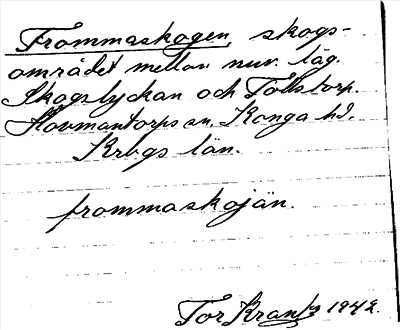 Frommaskogen, skogs-
området mellan nuv. läg.
Skogslyckan och Tolstorp.
Hovmantorps sn, Konga hd.
Krbgs län.
frommaskojän.
Tor Krantz 1942.